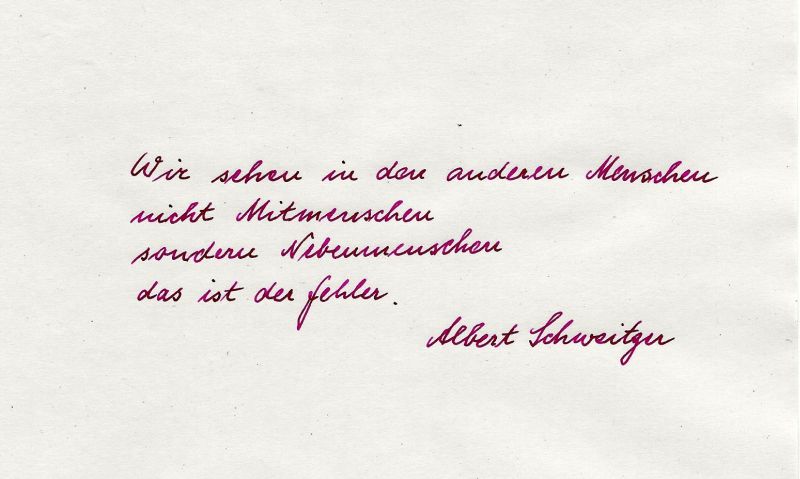 Wir sehen in den anderen Menschen
nicht Mitmenschen
sondern Nebenmenschen
das ist der Fehler.
Albert Schweitzer